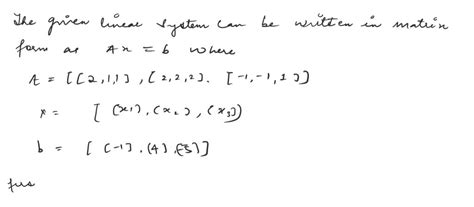 The given linear system can be written in matrix
form as Ax = b where
A = [[2,1,1], [2,2,2]. [-1,-1,1]]
x = [ (x1), (x2), (x3)]
b = [ (-1). (4) (-5)]